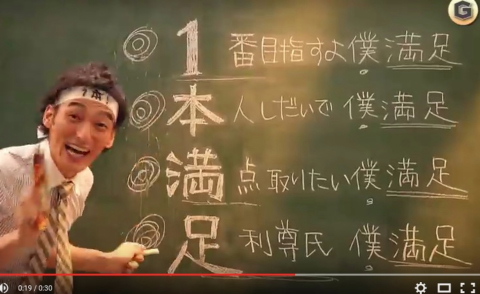 G
1番目指すよ僕満足
本人しだいで僕満足
満点取りたい僕満足
足利尊氏 僕満足
0:19 / 0:30